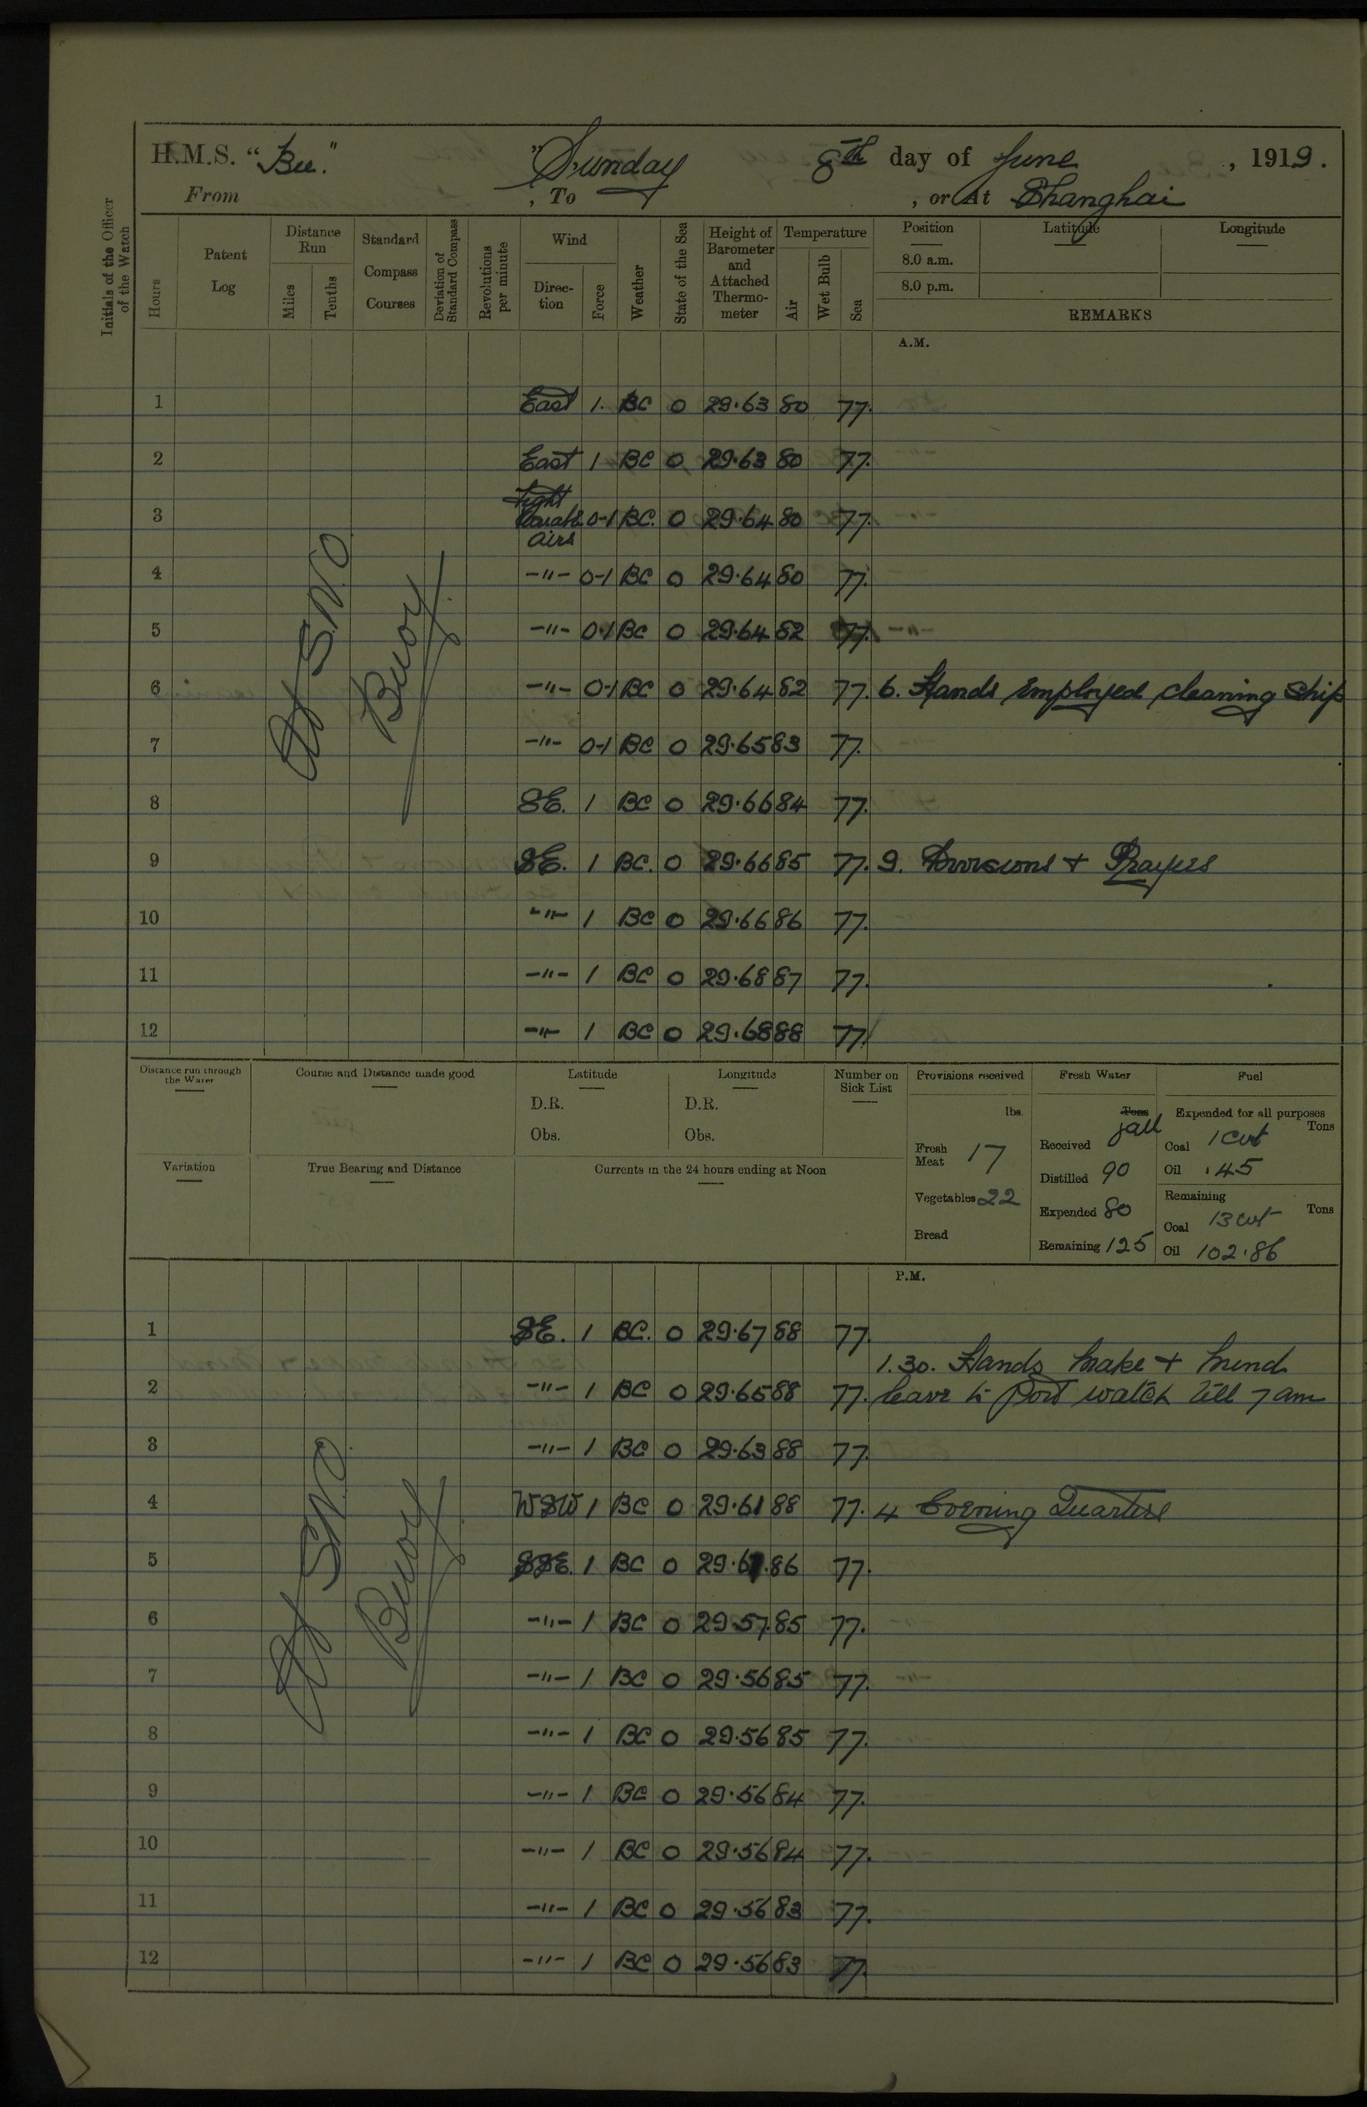 H.M.S. "Bee." Sunday 8th day of June, 1919.
From , To , or At Shanghai
Initials of the Officer of the Watch
Hours Patent Log Distance Run Miles Tenths Standard Compass Courses Deviation of Standard Compass Revolutions per minute Wind Direction Force Weather State of the Sea Height of Barometer and Attached Thermometer Temperature Air Wet Bulb Sea Position Latitude Longitude
8.0 a.m.
8.0 p.m.
REMARKS
A.M.
1 East 1. BC 0 29.63 80 77.
2 East 1 BC 0 29.63 80 77.
3 Light Variable airs 0-1 BC. 0 29.64 80 77.
4 -"- 0-1 BC 0 29.64 80 77.
5 -"- 0-1 BC 0 29.64 82 77.
6 -"- 0-1 BC 0 29.64 82 77. 6. Hands employed cleaning ship
7 -"- 0-1 BC 0 29.65 83 77.
8 SE. 1 BC 0 29.66 84 77.
9 SE. 1 BC. 0 29.66 85 77. 9. Divisions + Prayers
10 -"- 1 BC 0 29.66 86 77.
11 -"- 1 BC 0 29.68 87 77.
12 -"- 1 BC 0 29.68 88 77.
At S.N.O.
Buoy.
Distance run through the Water Course and Distance made good Latitude Longitude Number on Sick List Provisions received Fresh Water Fuel
D.R. D.R. lbs. Tons gall Expended for all purposes
Obs. Obs. Fresh Meat 17 Received Coal 1 cwt Tons
Variation True Bearing and Distance Currents in the 24 hours ending at Noon Distilled 90 Oil .45
Vegetables 22 Expended 80 Remaining Coal 13 cwt Tons
Bread Remaining 125 Oil 102.86
P.M.
1 SE. 1 BC. 0 29.67 88 77.
1.30. Hands make + mend
2 -"- 1 BC 0 29.65 88 77. leave to Port watch till 7 am
3 -"- 1 BC 0 29.63 88 77.
4 WSW 1 BC 0 29.61 88 77. 4 Evening Quarters
5 SSE. 1 BC 0 86 77.
6 -"- 1 BC 0 29.57 85 77.
7 -"- 1 BC 0 29.56 85 77.
8 -"- 1 BC 0 29.56 85 77.
9 -"- 1 BC 0 29.56 84 77.
10 -"- 1 BC 0 29.56 84 77.
11 -"- 1 BC 0 29.56 83 77.
12 -"- 1 BC 0 29.56 83 77.
At S.N.O.
Buoy